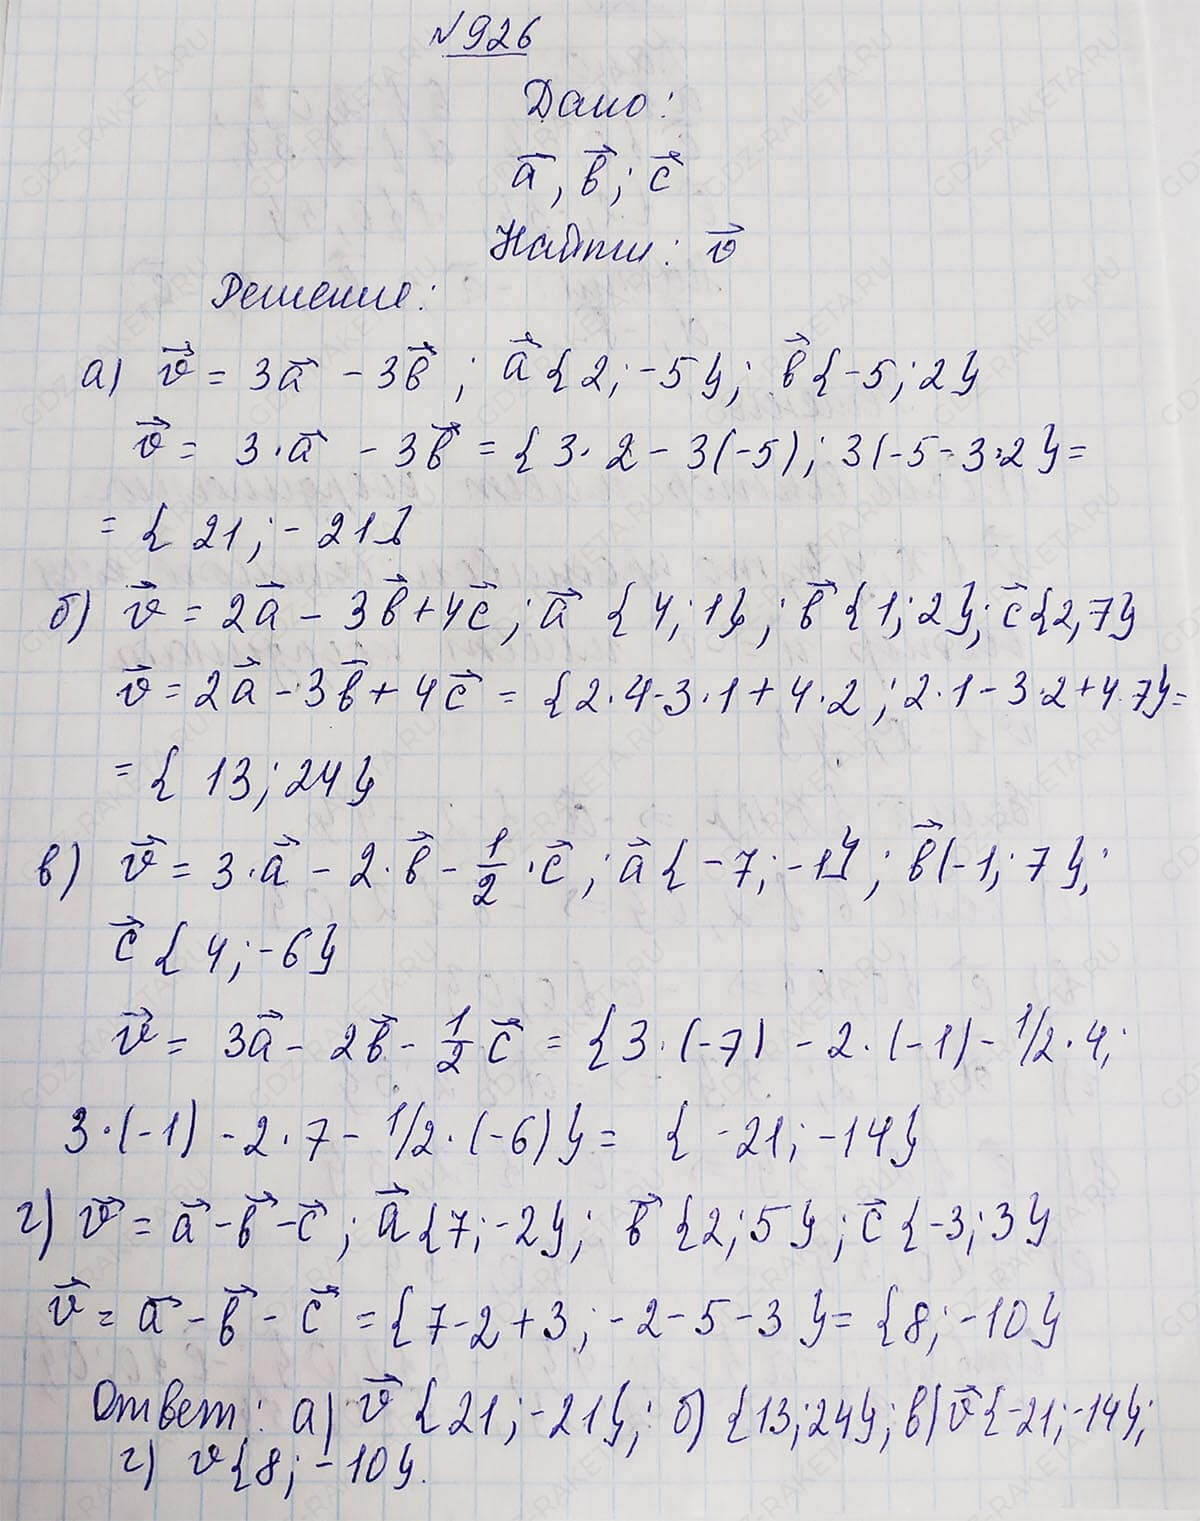 №926
Дано:
a⃗, b⃗; c⃗
Найти: v⃗
Решение:
а) v⃗ = 3a⃗ - 3b⃗; a⃗ {2; -5}; b⃗ {-5; 2}
v⃗ = 3·a⃗ - 3b⃗ = {3·2 - 3(-5); 3(-5-3·2} =
= {21; -21}
б) v⃗ = 2a⃗ - 3b⃗ + 4c⃗; a⃗ {4; 1}; b⃗ {1; 2}; c⃗ {2,7}
v⃗ = 2a⃗ - 3b⃗ + 4c⃗ = {2·4-3·1+4·2; 2·1-3·2+4·7} =
= {13; 24}
в) v⃗ = 3·a⃗ - 2·b⃗ - 1/2·c⃗; a⃗ {-7; -1}; b⃗(-1; 7};
c⃗ {4; -6}
v⃗ = 3a⃗ - 2b⃗ - 1/2 c⃗ = {3·(-7) - 2·(-1) - 1/2·4;
3·(-1) - 2·7 - 1/2·(-6)} = {-21; -14}
г) v⃗ = a⃗ - b⃗ - c⃗; a⃗ {7; -2}; b⃗ {2; 5}; c⃗ {-3; 3}
v⃗ = a⃗ - b⃗ - c⃗ = {7-2+3; -2-5-3} = {8; -10}
Ответ: а) v⃗ {21; -21}; б) {13; 24}; в) v⃗ {-21; -14};
г) v {8; -10}.
GDZ-RAKETA.RU